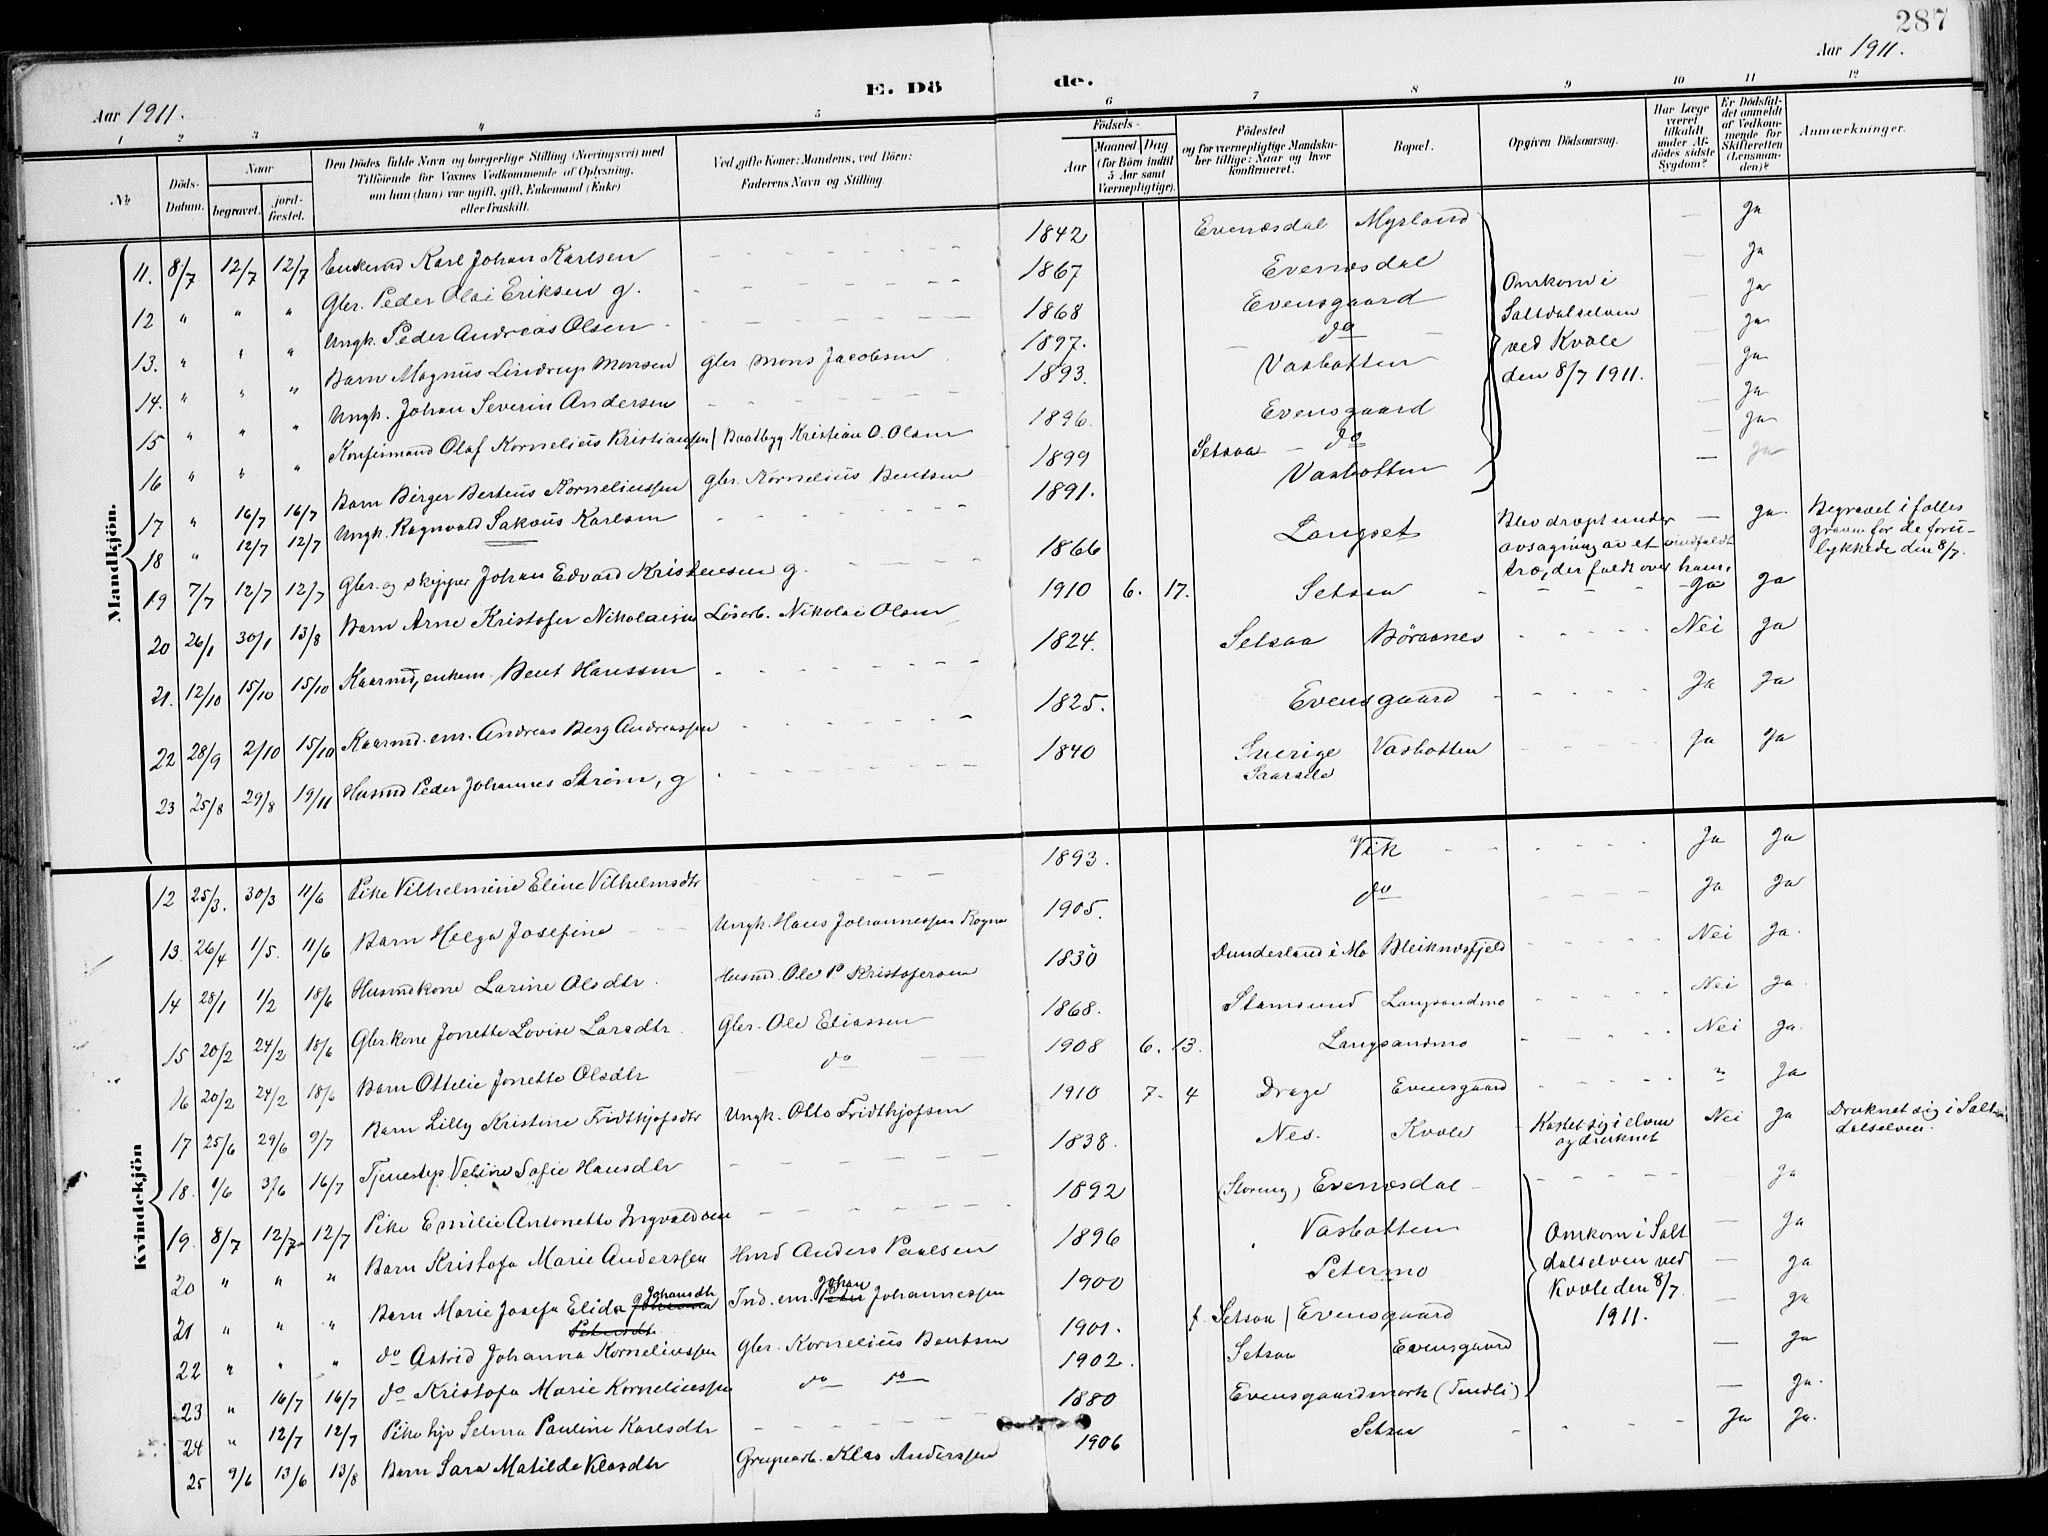 287
Aar 1911.
Aar 1911.
E. Dö de.
1 2 3 4 5 6 7 8 9 10 11 12
No
Döds-Datum.
Naar
begravet.
jord-fæstet.
Den Dödes fulde Navn og borgerlige Stilling (Næringsvei) med
Tilföiende for Voxnes Vedkommende af Oplysning,
om han (hun) var ugift, gift, Enkemand (Enke)
eller fraskilt.
Ved gifte Koner: Mandens, ved Börn:
Faderens Navn og Stilling.
Födsels-
Aar
Maaned Dag
(for Börn indtil
5 Aar samt
Værnepligtige).
Födested
og for værnepligtige Mandska-
ber tillige: Naar og hvor
konfirmeret.
Bopæl.
Opgiven Dödsaarsag.
Har Læge
været
tilkaldt
under Af-
dödes sidste
Sygdom?
Er Dödsfal-
det anmeldt
af Vedkom-
mende for
Skifteretten
(Lensman-
den)?
Anmærkninger.
Mandkjön.
11. 8/7 12/7 12/7 Enkemd Karl Johan Karlsen 1842 Evenesdal Myrland ja
12 " " " Gbr. Peder Olai Eriksen g. 1867 Evenesdal ja
13. " " " Ungk. Peder Andreas Olsen 1868 Evensgaard ja
14. " " " Barn Magnus Lindrup Monsen Gbr Mons Jacobsen 1897. do ja
15 " " " Ungk. Johan Severin Andersen 1893. Vasbotten ja
16 " " " Konfirmand Olaf Kornelius Kristiansen / Baadbyg Kristian O. Olsen 1896. Evensgaard ja
17 " 16/7 16/7 Barn Birger Berteus Korneliussen Gbr. Kornelius Bentsen 1899 Setsaa do ja
18 " 12/7 12/7 Ungk. Ragnvald Sakøus Karlsen 1891. Vasbotten ja
Omkom i
Saltdalselven
ved Kvæle
den 8/7 1911.
19 7/7 12/7 12/7 Gbr. og skipper Johan Edvard Kristensen g. 1866 Langset Blev dræpt under
avsagning av et vindfældt
træ, der faldt over ham. ja. Begravet i fælles
graven for de foru-
lykkede den 8/7.
20 26/1 30/1 13/8 Barn Arne Kristofer Nikolaisen Löserb. Nikolai Olsen 1910 6. 17. Setsaa Ja ja
21. 12/10 15/10 15/10 Kaarmd, enkem. Bent Hanssen 1824. Setsaa Böraanes Nei ja
22 28/9 2/10 15/10 Kaarmd. em. Andreas Berg Andreassen 1825. Evensgaard Ja ja
23 25/8 29/8 19/11 Husmd Peder Johannes Ström, g 1840 Sverige Vasbotten Ja Ja
Kvindekjön
12 25/3. 30/3 11/6 Pike Vilhelmine Eline Vilhelmsdtr 1893. Vik Ja Ja
13. 26/4 1/5. 11/6 Barn Helga Josefine Ungk. Hans Johannessen Rogna 1905. do Ja Ja
14 28/1 1/2 18/6 Husmdkone Larine Olsdtr. Husmd. Ole P. Kristofersen 1830 Dunderland i Mo Bleiknesfjeld Nei Ja.
15 20/2 24/2 18/6 Gbrkone Jonette Lovise Larsdtr. Gbr. Ole Eliassen 1868. Stamsund Langsandmo Nei ja.
16 20/2 24/2 18/6 Barn Ottelie Jonette Olsdtr do 1908 6. 13. Langsandmo Nei ja.
17 25/6 29/6 9/7 Barn Lilly Kristine Fridthjofsdtr Ungk. Otto Fridthjofsen 1910 7. 4 Drage Evensgaard " Ja
18. 1/6 3/6 16/7 Tjenestep Veline Sofie Hansdtr 1838. Nes. Kvæle Kastet sig i elven
og druknet Nei ja Druknet sig i Salt-
dalselven.
19. 8/7 12/7 12/7 Pike Emilie Antonette Ingvaldsen 1892 (Storeng) Evenesdal ja
20 " " " Barn Kristofa Marie Anderssen Hmd Anders Paulsen 1896 Vasbotten ja
21 " " " Barn Marie Josefa Elida Johansdtr Johanna
Petersdtr Ind. em. Johan Peter Johannessen 1900 Setermo ja
22 " " " do Astrid Johanna Korneliussen Gbr. Kornelius Bentsen 1901. f. Setsaa / Evensgaard ja
23 " 16/7 16/7 do Kristofa Marie Korneliussen do do 1902. Setsaa Evensgaard ja
24 " 12/7 12/7 Pike hjo Selma Pauline Karlsdtr 1880 Evensgaardmark (Tendli) ja.
Omkom i Salt
dalselven ved
Kvæle den 8/7
1911.
25 9/6 13/6 13/8 Barn Sara Matilde Klasdtr Grupearb. Klas Anderssen 1906 Setsaa Ja Ja.